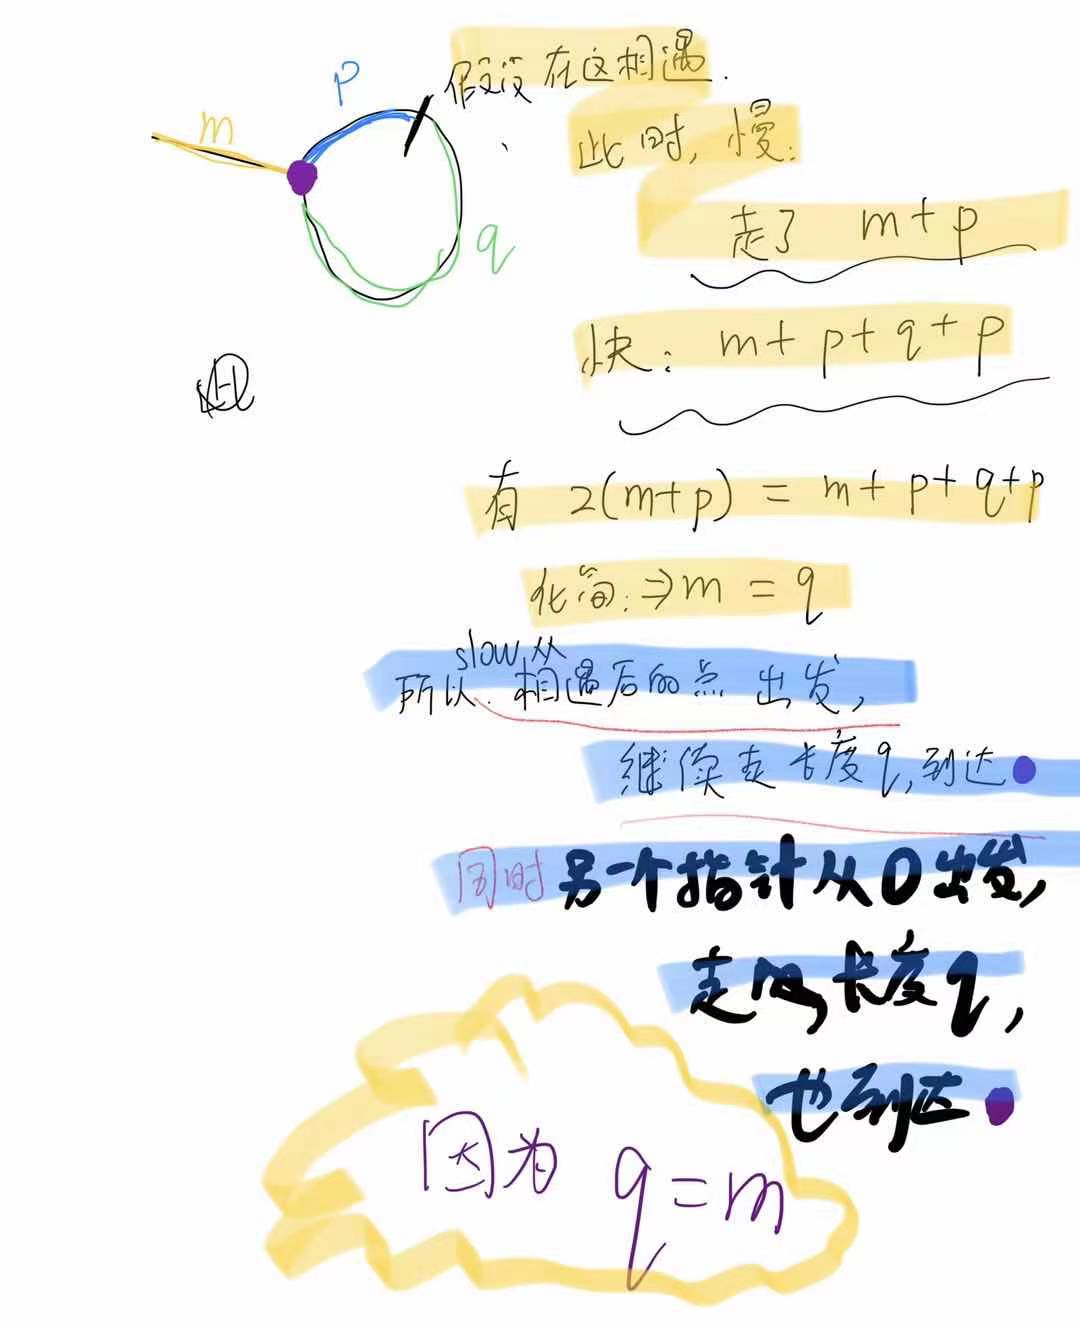 p
m
q
假设在这相遇.
此时, 慢:
走了 m+p
快: m+p+q+p
有 2(m+p) = m+p+q+p
化简: ⇒ m = q
slow从
所以. 相遇后的点 出发,
继续走长度q,到达
同时 另一个指针从0出发,
走 长度q,
也到达
因为 q=m